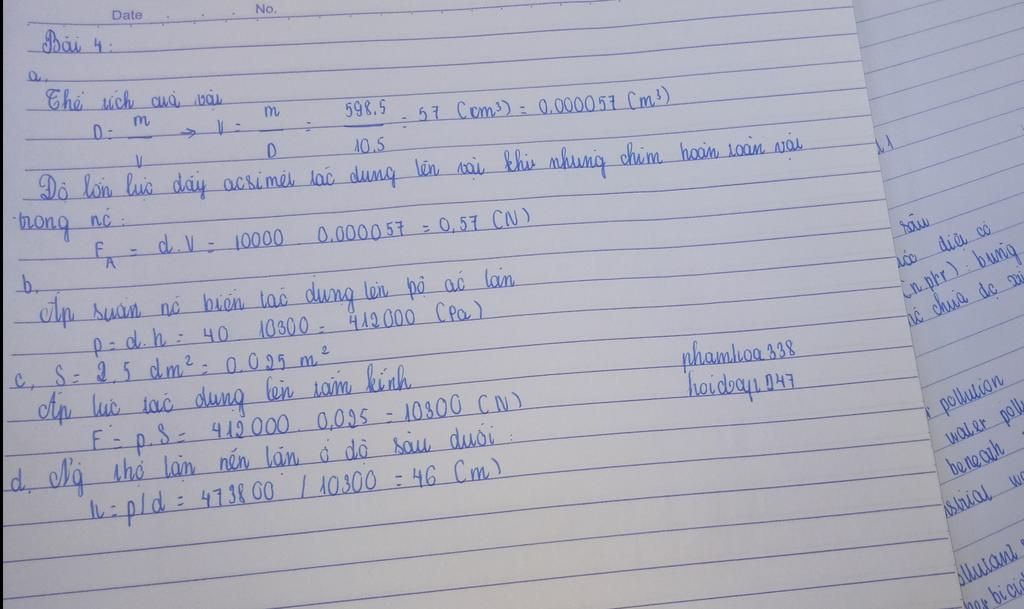 Date No.
Bài 4:
a.
Thể tích của vật
D = m/V → V = m/D = 598.5/10.5 = 57 (cm³) = 0.000057 (m³)
Độ lớn lực đẩy acsimét tác dụng lên vật khi nhúng chìm hoàn toàn vật
trong nc:
F_A = d.V = 10000 0.000057 = 0,57 (N)
b.
Áp suất nc biển tác dụng lên bộ áo lặn
p = d.h = 40 10300 = 412000 (Pa)
c, S = 2,5 dm² = 0.025 m²
Áp lực tác dụng lên tấm kính
F = p.S = 412000. 0,025 = 10300 (N)
d. Ng thợ lặn nên lặn ở độ sâu dưới:
h = p/d = 473800 / 10300 = 46 (m)
phamhoa338
hoidap247
sâu
diệu có
bụng
nc chứa
pollution
water
beneath